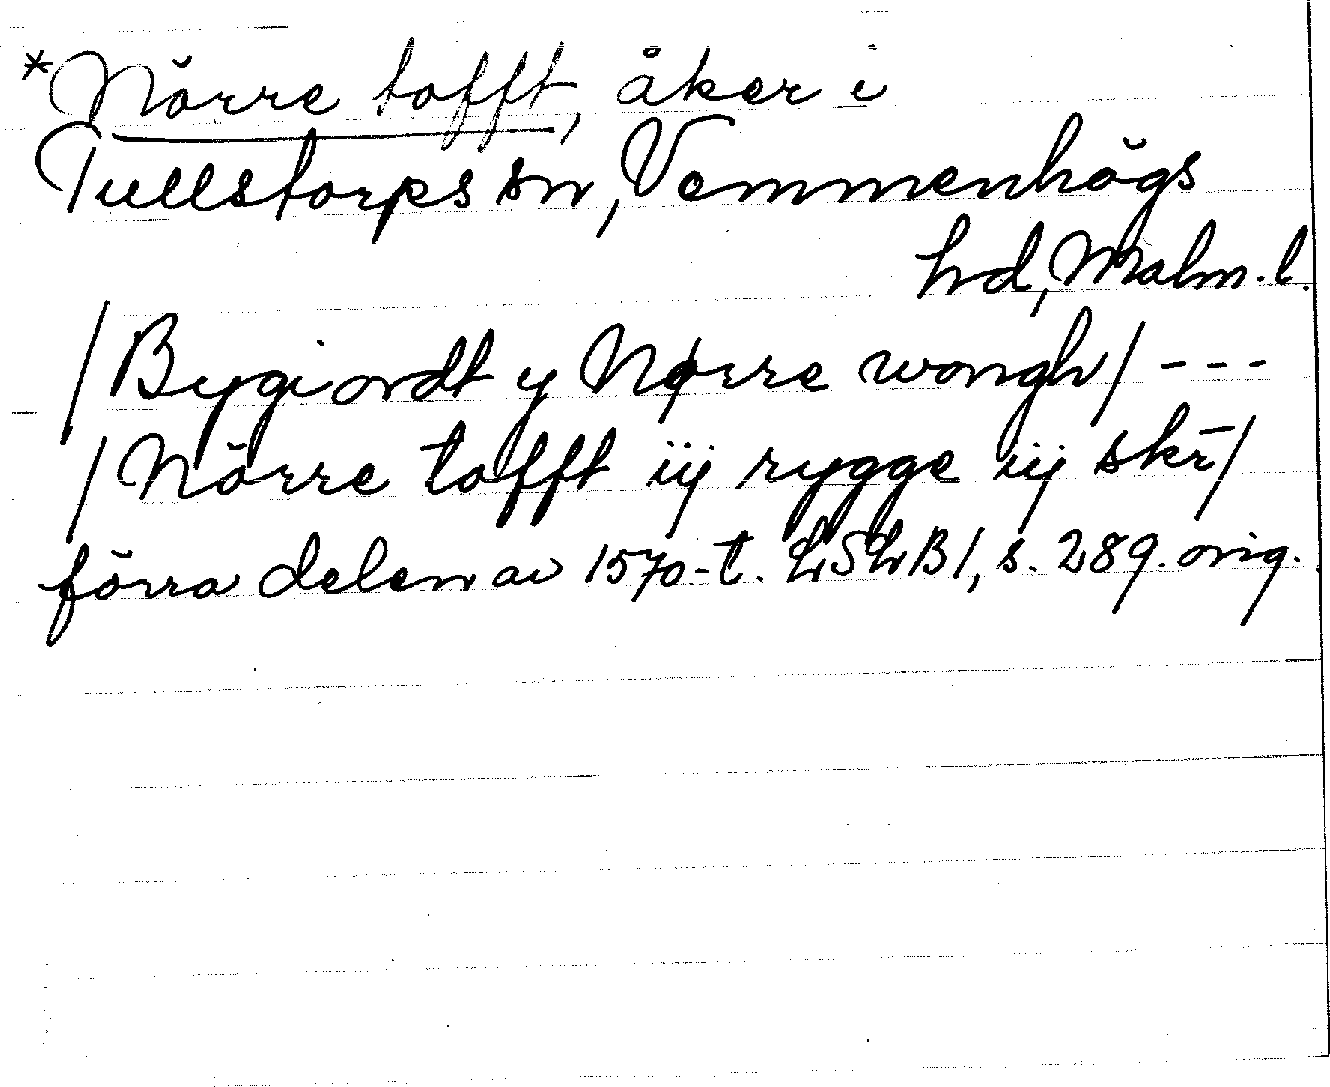 *Nörre tofft, åker i
Tullstorps sn, Vemmenhögs
hd, Malm. l.
/Bygiordt y Nørre wongh/ ---
/Nörre tofft iij rygge iij skr̄/
förra delen av 1570-t. LSLB1, s. 289. orig.